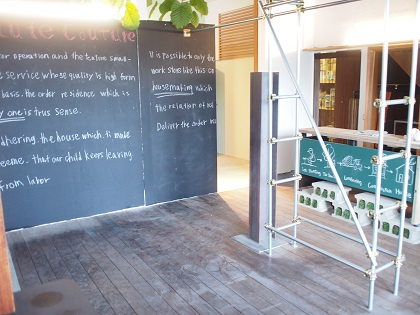 Couture
or operation and the texture small
e service whose quality is high form
basis. the order residence which is
y one is true sense.
dhering. the house which. ti made
eeme. that our child keeps leaving
from labor
it is possible to only
work store like this co
housemaking which
the relation of
Deliver the order
Lumbering
Construction